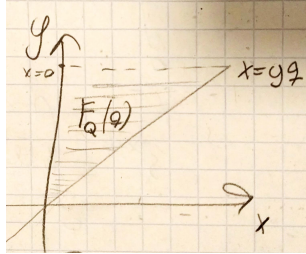 y
x=0
x=yq
F_Q(q)
x